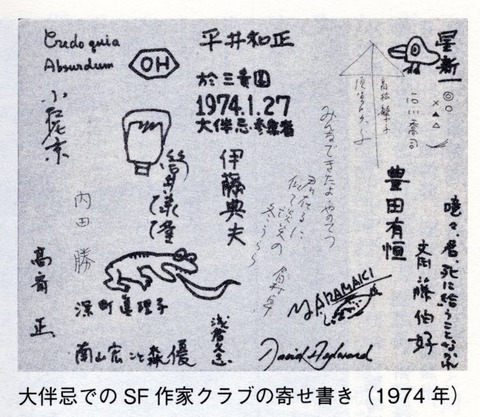 Credo quia
Absurdum
OH
平井和正
於三養園
1974.1.27
大伴忌参楽者
星新一
小松左京
筒井義隆
伊藤典夫
内田勝
高斎正
みんなできたよ やのてつ
眉村卓
石川喬司
高橋繁子
豊田有恒
嗚々、君、死に給うことなかれ
斎藤伯好
深町真理子
南山宏
森優
浅倉久志
MARAMAKI
David Aylward
大伴忌でのSF作家クラブの寄せ書き（1974年）